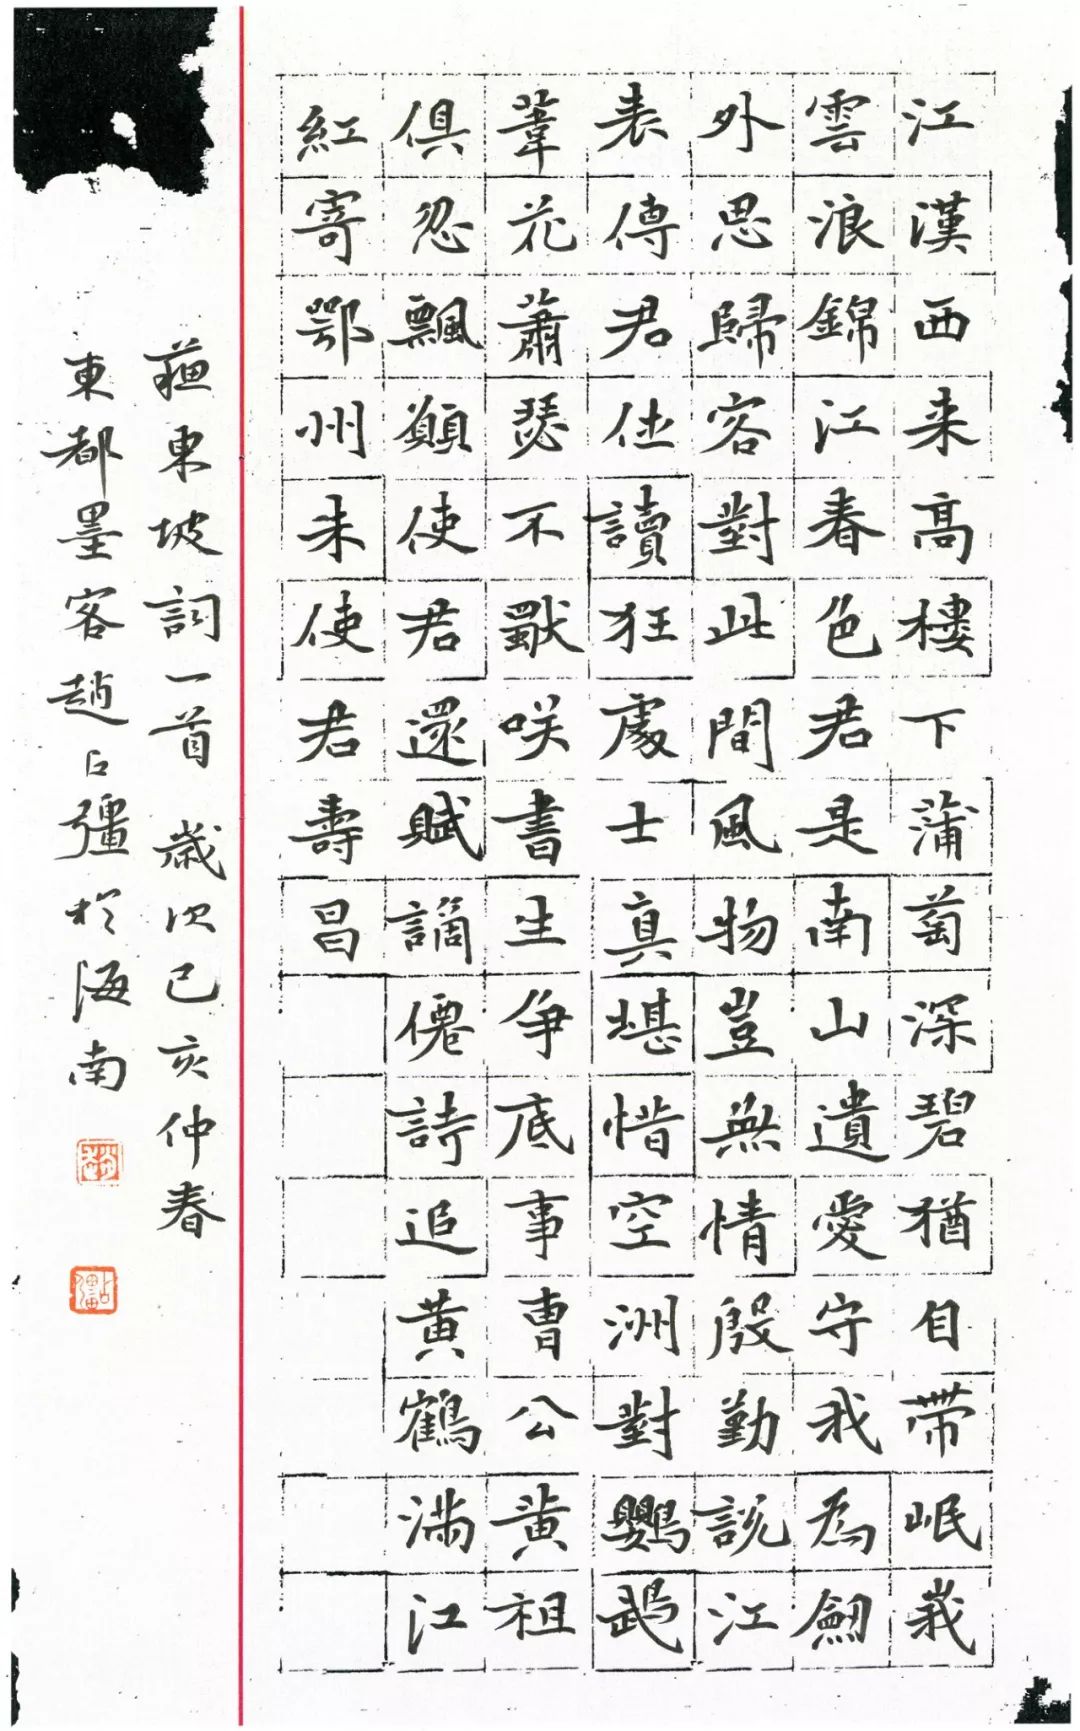 江漢西来高樓下蒲萄深碧猶自帶岷峩
雲浪錦江春色君是南山遺愛守我為劒
外思歸客對此間風物豈無情殷勤說江
表傳君休讀狂處士真堪惜空洲對鸚鵡
葦花蕭瑟不獨咲書生爭底事曹公黃祖
俱忽飄願使君還賦謫僊詩追黃鶴滿江
紅寄鄂州朱使君壽昌
蘓東坡詞一首歲次己亥仲春
東都墨客趙占彊於海南
趙
占彊